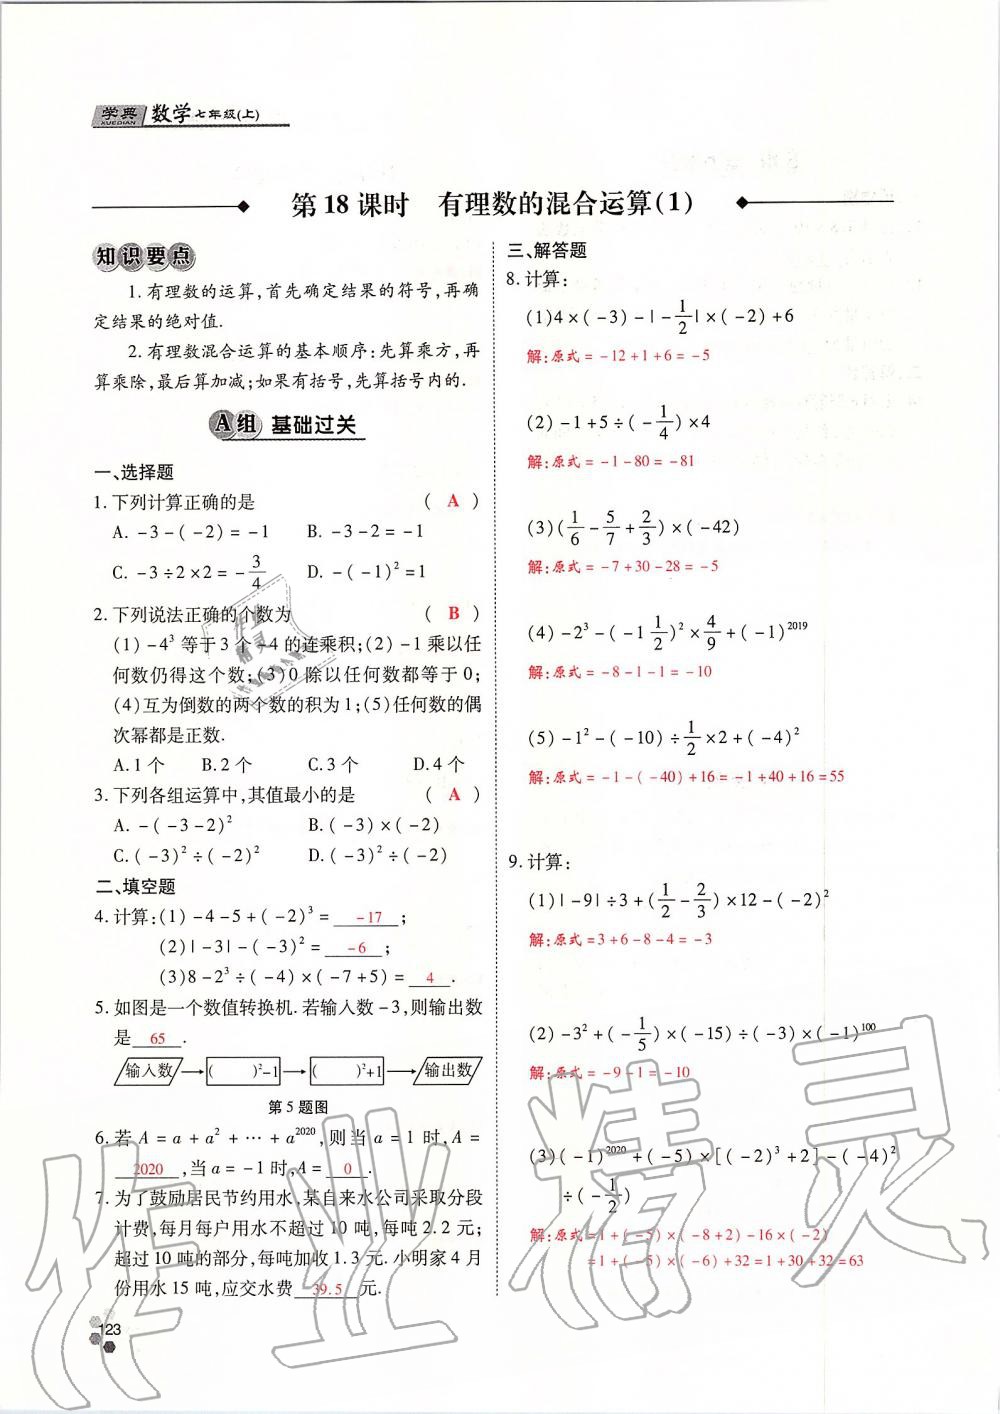 学典 XUEDIAN 数学七年级(上)
第18课时 有理数的混合运算(1)
知识要点
1.有理数的运算,首先确定结果的符号,再确
定结果的绝对值.
2.有理数混合运算的基本顺序:先算乘方,再
算乘除,最后算加减;如果有括号,先算括号内的.
A组 基础过关
一、选择题
1.下列计算正确的是 ( A )
A. -3-(-2)=-1 B. -3-2=-1
C. -3÷2×2=-3/4 D. -(-1)²=1
2.下列说法正确的个数为 ( B )
(1)-4³等于3个-4的连乘积;(2)-1乘以任
何数仍得这个数;(3)0除以任何数都等于0;
(4)互为倒数的两个数的积为1;(5)任何数的偶
次幂都是正数.
A.1个 B.2个 C.3个 D.4个
3.下列各组运算中,其值最小的是 ( A )
A. -(-3-2)² B.(-3)×(-2)
C.(-3)²÷(-2)² D.(-3)²÷(-2)
二、填空题
4.计算:(1)-4-5+(-2)³=-17;
(2)|-3|-(-3)²=-6;
(3)8-2³÷(-4)×(-7+5)=4.
5.如图是一个数值转换机.若输入数-3,则输出数
是65.
输入数 ( )²-1 ( )²+1 输出数
第5题图
6.若A=a+a²+⋯+a²⁰²⁰,则当a=1时,A=
2020,当a=-1时,A=0.
7.为了鼓励居民节约用水,某自来水公司采取分段
计费,每月每户用水不超过10吨,每吨2.2元;
超过10吨的部分,每吨加收1.3元.小明家4月
份用水15吨,应交水费39.5元.
123
三、解答题
8.计算:
(1)4×(-3)-|-1/2|×(-2)+6
解:原式=-12+1+6=-5
(2)-1+5÷(-1/4)×4
解:原式=-1-80=-81
(3)(1/6-5/7+2/3)×(-42)
解:原式=-7+30-28=-5
(4)-2³-(-1 1/2)²×4/9+(-1)²⁰¹⁹
解:原式=-8-1-1=-10
(5)-1²-(-10)÷1/2×2+(-4)²
解:原式=-1-(-40)+16=-1+40+16=55
9.计算:
(1)|-9|÷3+(1/2-2/3)×12-(-2)²
解:原式=3+6-8-4=-3
(2)-3²+(-1/5)×(-15)÷(-3)×(-1)¹⁰⁰
解:原式=-9-1=-10
(3)(-1)²⁰²⁰+(-5)×[(-2)³+2]-(-4)²
÷(-1/2)
解:原式=1+(-5)×(-8+2)-16×(-2)
=1+(-5)×(-6)+32=1+30+32=63
作业精灵